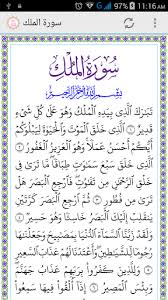 11:16 AM
سورة الملك
سُورَةُ المُلْكِ
بِسْمِ اللَّهِ الرَّحْمَٰنِ الرَّحِيمِ
تَبَٰرَكَ ٱلَّذِى بِيَدِهِ ٱلْمُلْكُ وَهُوَ عَلَىٰ كُلِّ شَىْءٍ
قَدِيرٌ ١ ٱلَّذِى خَلَقَ ٱلْمَوْتَ وَٱلْحَيَوٰةَ لِيَبْلُوَكُمْ
أَيُّكُمْ أَحْسَنُ عَمَلًا وَهُوَ ٱلْعَزِيزُ ٱلْغَفُورُ ٢
ٱلَّذِى خَلَقَ سَبْعَ سَمَٰوَٰتٍ طِبَاقًا مَّا تَرَىٰ فِى
خَلْقِ ٱلرَّحْمَٰنِ مِن تَفَٰوُتٍ فَٱرْجِعِ ٱلْبَصَرَ هَلْ تَرَىٰ
مِن فُطُورٍ ٣ ثُمَّ ٱرْجِعِ ٱلْبَصَرَ كَرَّتَيْنِ
يَنقَلِبْ إِلَيْكَ ٱلْبَصَرُ خَاسِئًا وَهُوَ حَسِيرٌ ٤
وَلَقَدْ زَيَّنَّا ٱلسَّمَآءَ ٱلدُّنْيَا بِمَصَٰبِيحَ وَجَعَلْنَٰهَا
رُجُومًا لِّلشَّيَٰطِينِ وَأَعْتَدْنَا لَهُمْ عَذَابَ ٱلسَّعِيرِ
٥ وَلِلَّذِينَ كَفَرُوا۟ بِرَبِّهِمْ عَذَابُ جَهَنَّمَ
وَبِئْسَ ٱلْمَصِيرُ ٦ إِذَآ أُلْقُوا۟ فِيهَا